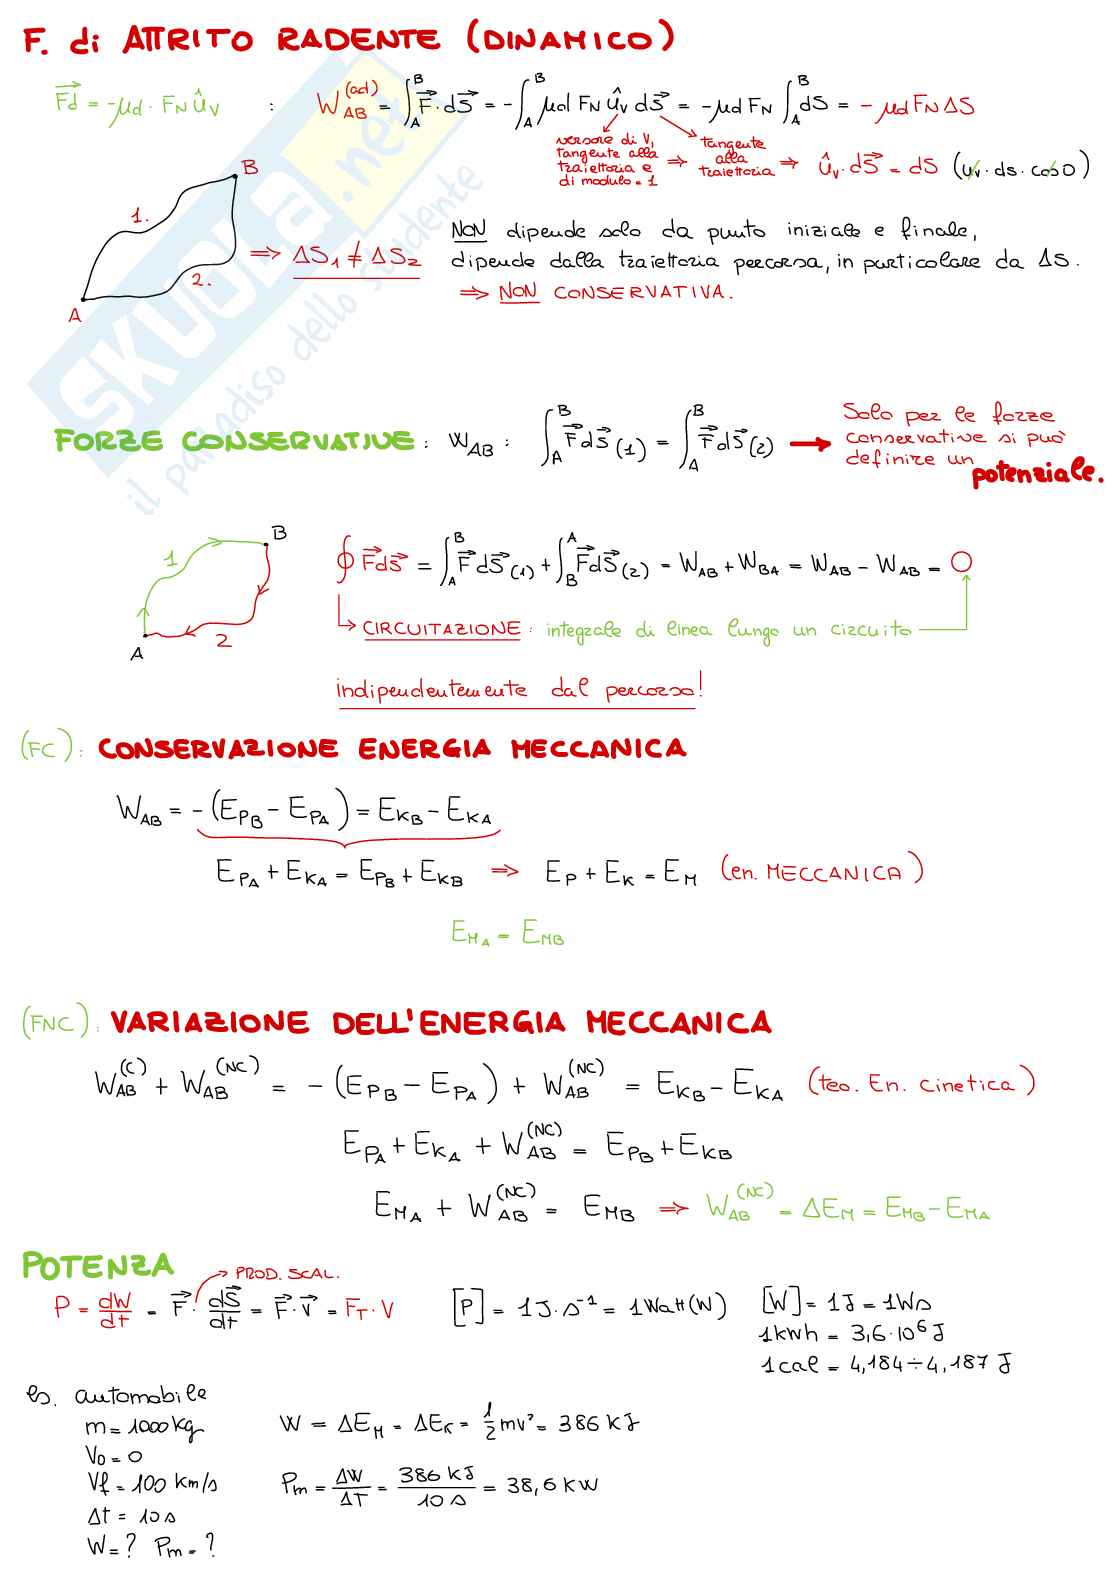 F. di ATTRITO RADENTE (DINAMICO)
F⃗d = -μd · FN ûv : W_AB^(ad) = ∫_A^B F⃗ · dS⃗ = - ∫_A^B μd FN ûv dS⃗ = -μd FN ∫_A^B dS = -μd FN ΔS
versore di V, tangente alla traiettoria e di modulo = 1 ⇒ tangente alla traiettoria ⇒ ûv · dS⃗ = dS (uv · ds · cos0)
B
1.
2.
A
⇒ ΔS1 ≠ ΔS2
NON dipende solo da punto iniziale e finale,
dipende dalla traiettoria percorsa, in particolare da ΔS.
⇒ NON CONSERVATIVA.
SKUOLA.net
il paradiso dello studente
FORZE CONSERVATIVE : W_AB : ∫_A^B F⃗dS⃗ (1) = ∫_A^B F⃗dS⃗ (2) → Solo per le forze
conservative si può
definire un potenziale.
B
1
2
A
∮ F⃗dS⃗ = ∫_A^B F⃗dS⃗ (1) + ∫_B^A F⃗dS⃗ (2) = W_AB + W_BA = W_AB - W_AB = 0
↳ CIRCUITAZIONE : integrale di linea lungo un circuito
indipendentemente dal percorso!
(FC) : CONSERVAZIONE ENERGIA MECCANICA
W_AB = -(E_PB - E_PA) = E_KB - E_KA
E_PA + E_KA = E_PB + E_KB ⇒ E_P + E_K = E_M (en. MECCANICA)
E_MA = E_MB
(FNC) : VARIAZIONE DELL'ENERGIA MECCANICA
W_AB^(C) + W_AB^(NC) = - (E_PB - E_PA) + W_AB^(NC) = E_KB - E_KA (teo. En. cinetica)
E_PA + E_KA + W_AB^(NC) = E_PB + E_KB
E_MA + W_AB^(NC) = E_MB ⇒ W_AB^(NC) = ΔE_M = E_MB - E_MA
POTENZA
→ PROD. SCAL.
P = dW/dt = F⃗ · dS⃗/dt = F⃗ · v⃗ = F_T · V [P] = 1J · s⁻¹ = 1Watt(W) [W] = 1J = 1Ws
1kwh = 3,6·10⁶ J
1cal = 4,184 ÷ 4,187 J
Es. automobile
m = 1000 kg W = ΔE_M = ΔE_K = 1/2 mv² = 386 kJ
V0 = 0
Vf = 100 km/s Pm = ΔW/ΔT = 386 kJ/10 s = 38,6 KW
Δt = 10 s
W = ? Pm = ?